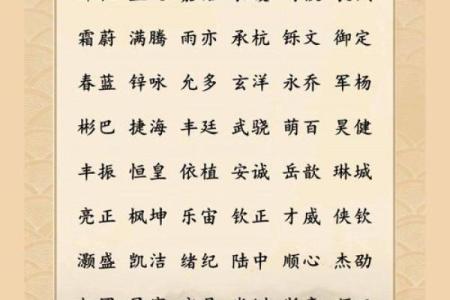 霜蔚 满腾 雨亦 承杭 铄文 御定
春蓝 锌咏 允多 玄洋 永乔 军杨
彬巴 捷海 丰廷 武骁 萌百 昊健
丰振 恒皇 依植 安诚 岳歆 琳城
亮正 枫坤 乐宙 钦正 才威 侠钦
灏盛 凯洁 绪纪 陆中 顺心 杰劭